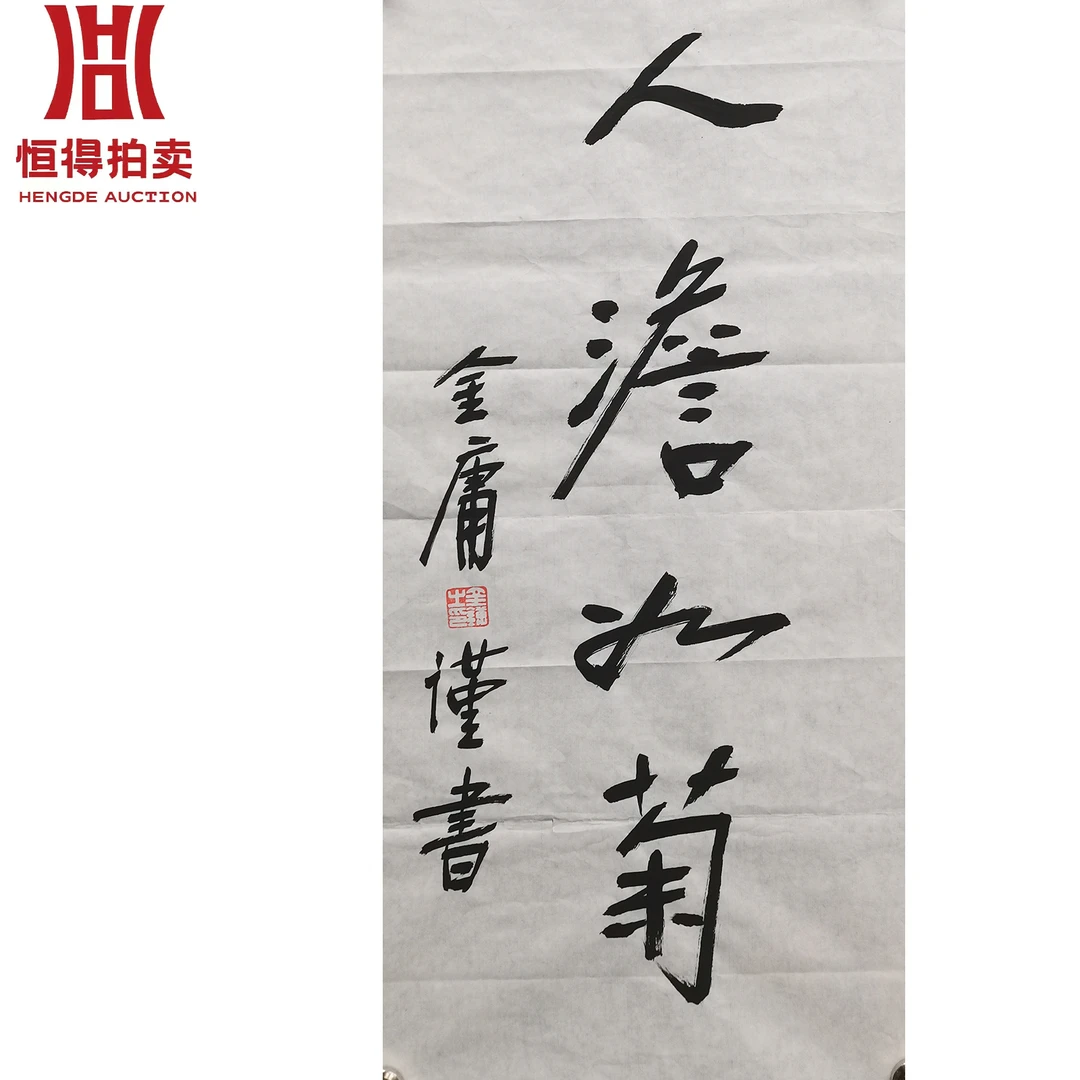 恒得拍卖
HENGDE AUCTION
人澹如菊
金庸谨書